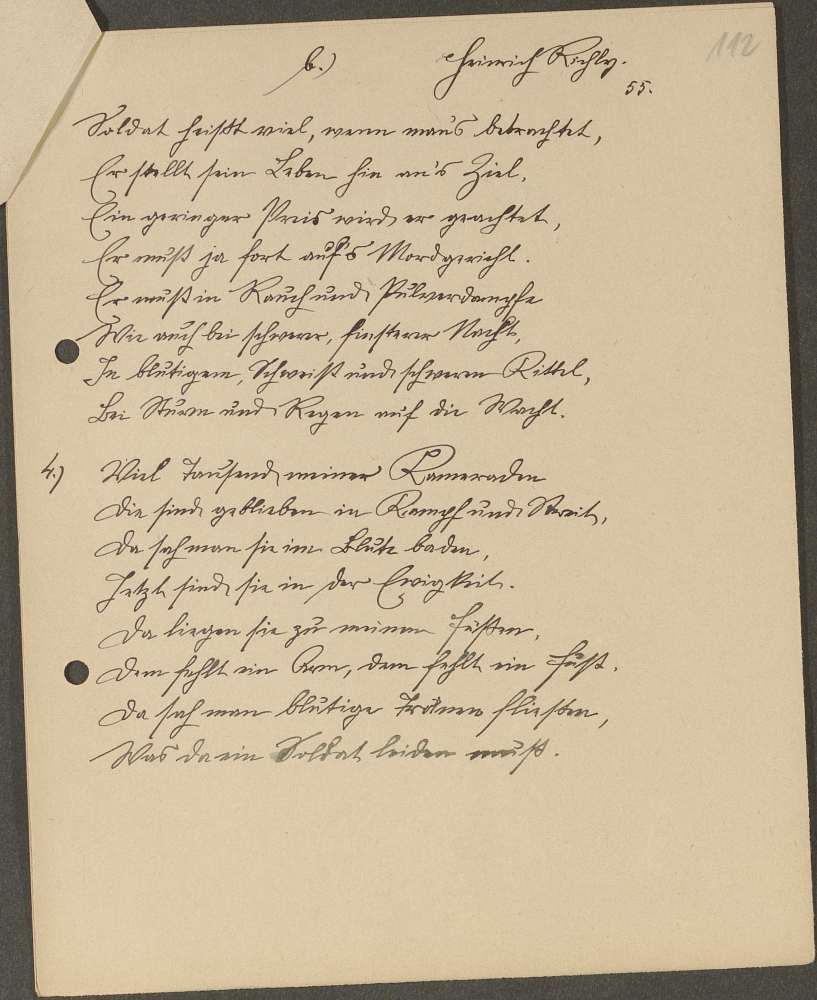 b.) Heinrich Richly.
112
55.
Soldat heißt viel, wenn man's betrachtet,
Er stellt sein Leben hin an's Ziel,
Ein geringer Preis wird er geachtet,
Er muß ja fort auf's Mordgericht.
Er muß in Rauch und Pulverdampfe
Wie auch bei schwerer, finsterer Nacht,
In blutigem, Schweiß und schweren Kittel,
Bei Sturm und Regen auf die Wacht.
4.) Viel Tausend meiner Kameraden
Die sind geblieben in Kampf und Streit,
Da sah man sie im Blute baden,
Jetzt sind sie in der Ewigkeit.
Da liegen sie zu meinen Füßen,
Dem fehlt ein Arm, dem fehlt ein Fuß.
Da sah man blutige Tränen fließen,
Was da ein Soldat leiden muß.